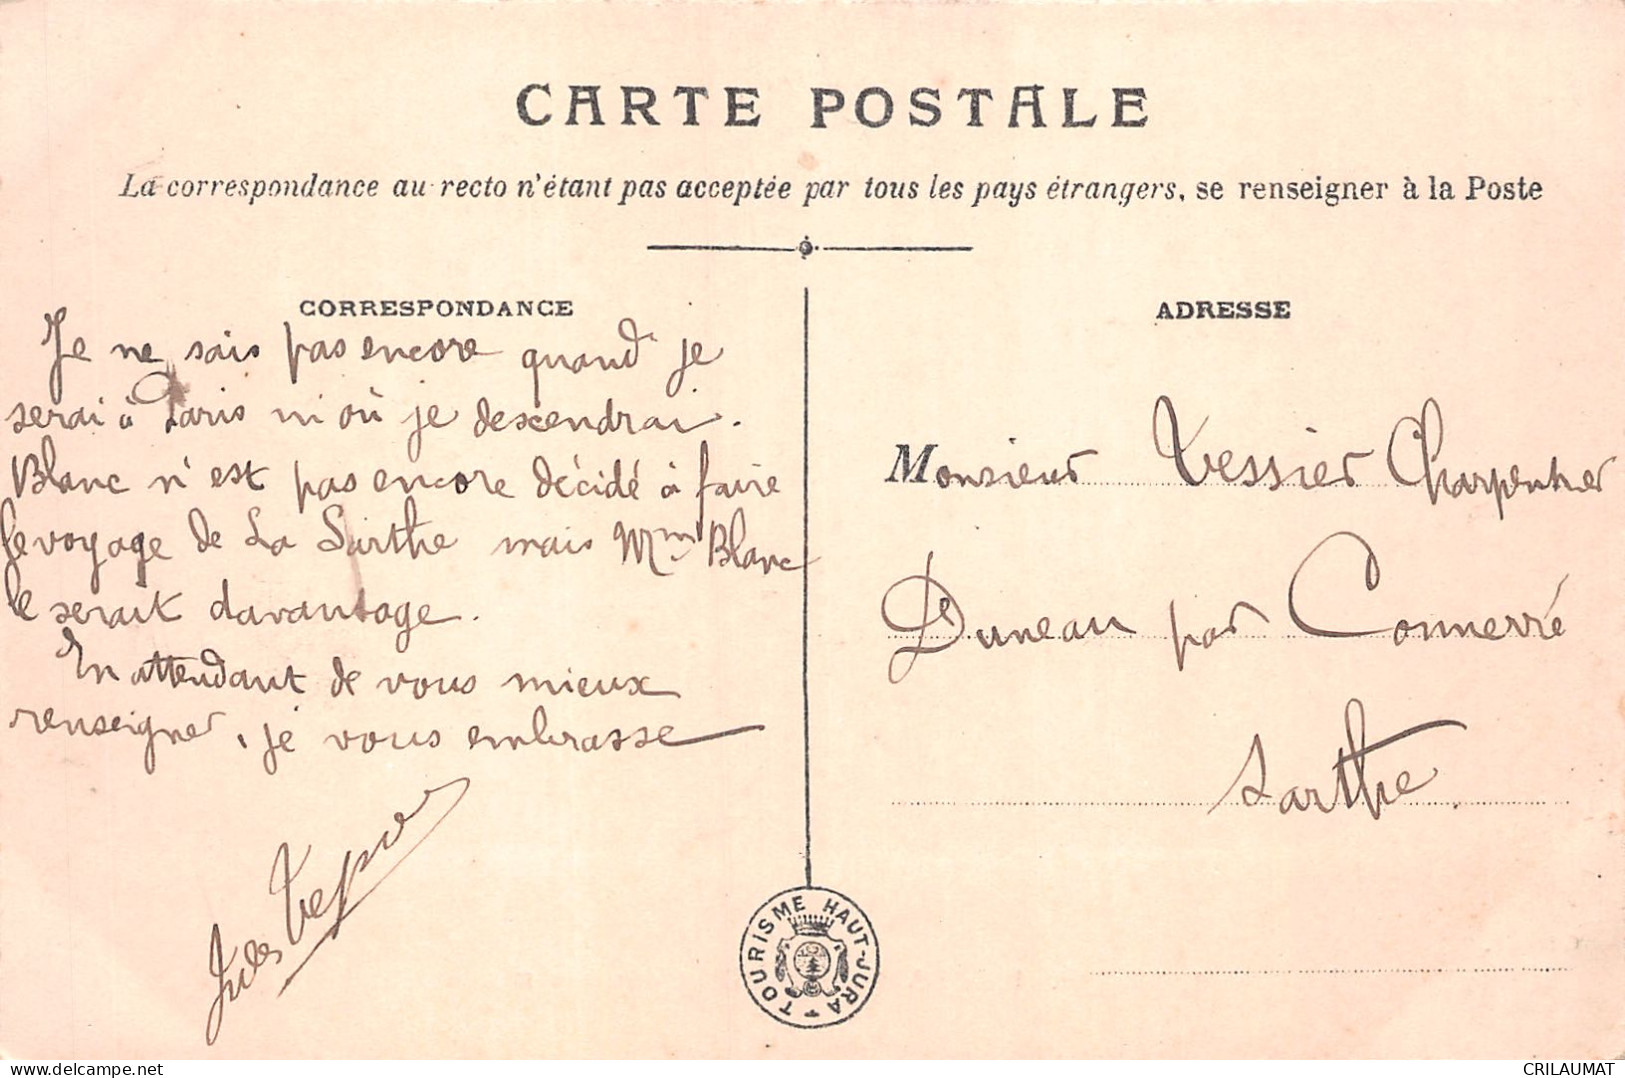 CARTE POSTALE
La correspondance au recto n'étant pas acceptée par tous les pays étrangers, se renseigner à la Poste
CORRESPONDANCE
Je ne sais pas encore quand je
serai à Paris ni où je descendrai.
Blanc n'est pas encore décidé à faire
le voyage de La Sarthe mais Mme Blanc
le serait davantage.
En attendant de vous mieux
renseigner, je vous embrasse
Jules
ADRESSE
Monsieur Tessier Charpentier
Duneau par Connerré
Sarthe.
TOURISME HAUT-JURA
CRILAUMAT